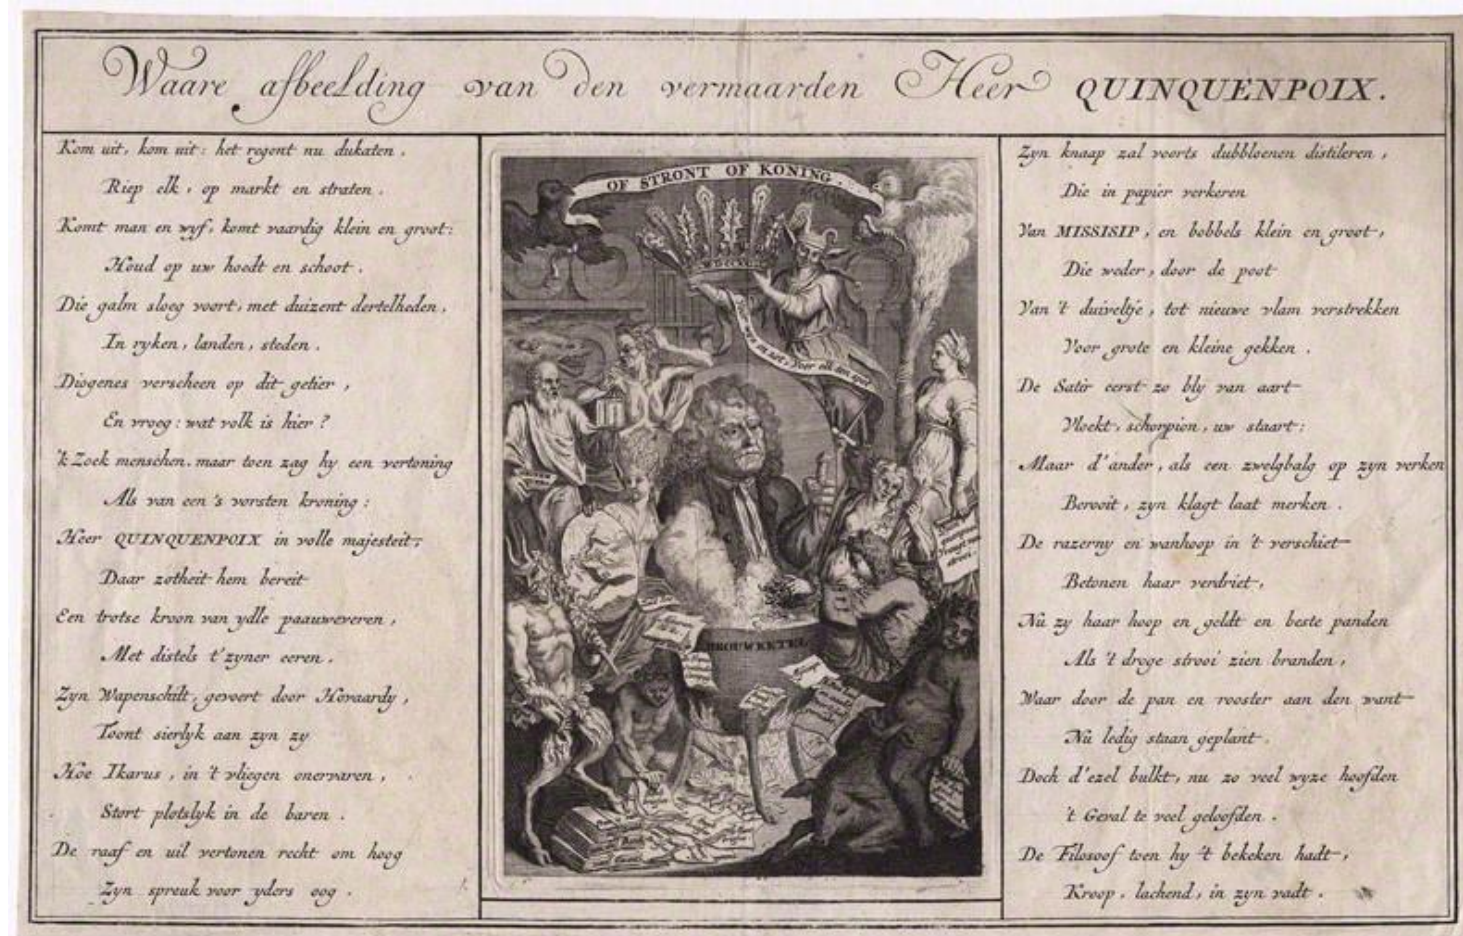 Waare afbeelding van den vermaarden Heer QUINQUENPOIX.
Kom uit, kom uit: het regent nu dukaten,
Riep elk, op markt en straten.
Komt man en wyf, komt vaardig klein en groot:
Houd op uw hoedt en schoot.
Die galm sloeg voort, met duizent dertelheden,
In ryken, landen, steden.
Diogenes verscheen op dit getier,
En vroeg: wat volk is hier?
'k Zoek menschen. maar toen zag hy een vertoning
Als van een 's vorsten kroning:
Heer QUINQUENPOIX in volle majesteit;
Daar zotheit hem bereit
Een trotse kroon van ydle paauweveren,
Met distels t'zyner eeren.
Zyn Wapenschilt, gevoert door Hovaardy,
Toont sierlyk aan zyn zy
Hoe Ikarus, in 't vliegen onervaren,
Stort plotslyk in de baren.
De raaf en uil vertonen recht om hoog
Zyn spreuk voor yders oog.
OF STRONT OF KONING.
Voor elk een spot
BROUWKETEL
Zyn knaap zal voorts dubbloenen distileren,
Die in papier verkeren
Van MISSISIP, en bobbels klein en groot,
Die weder, door de poot
Van 't duiveltje, tot nieuwe vlam verstrekken
Voor grote en kleine gekken.
De Satir eerst zo bly van aart
Vloekt, schorpion, uw staart:
Maar d'ander, als een zwelgbalg op zyn verken
Berooit, zyn klagt laat merken.
De razerny en wanhoop in 't verschiet
Betonen haar verdriet,
Nu zy haar hoop en geldt en beste panden
Als 't droge strooi zien branden,
Waar door de pan en rooster aan den want
Nu ledig staan geplant.
Doch d'ezel bulkt, nu zo veel wyze hoofden
't Geval te veel geloofden.
De Filosoof toen hy 't bekeken hadt,
Kroop, lachend, in zyn vadt.